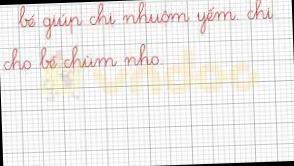 bé giúp chị nhuộm yếm. chị
cho bé chùm nho.
vndoc